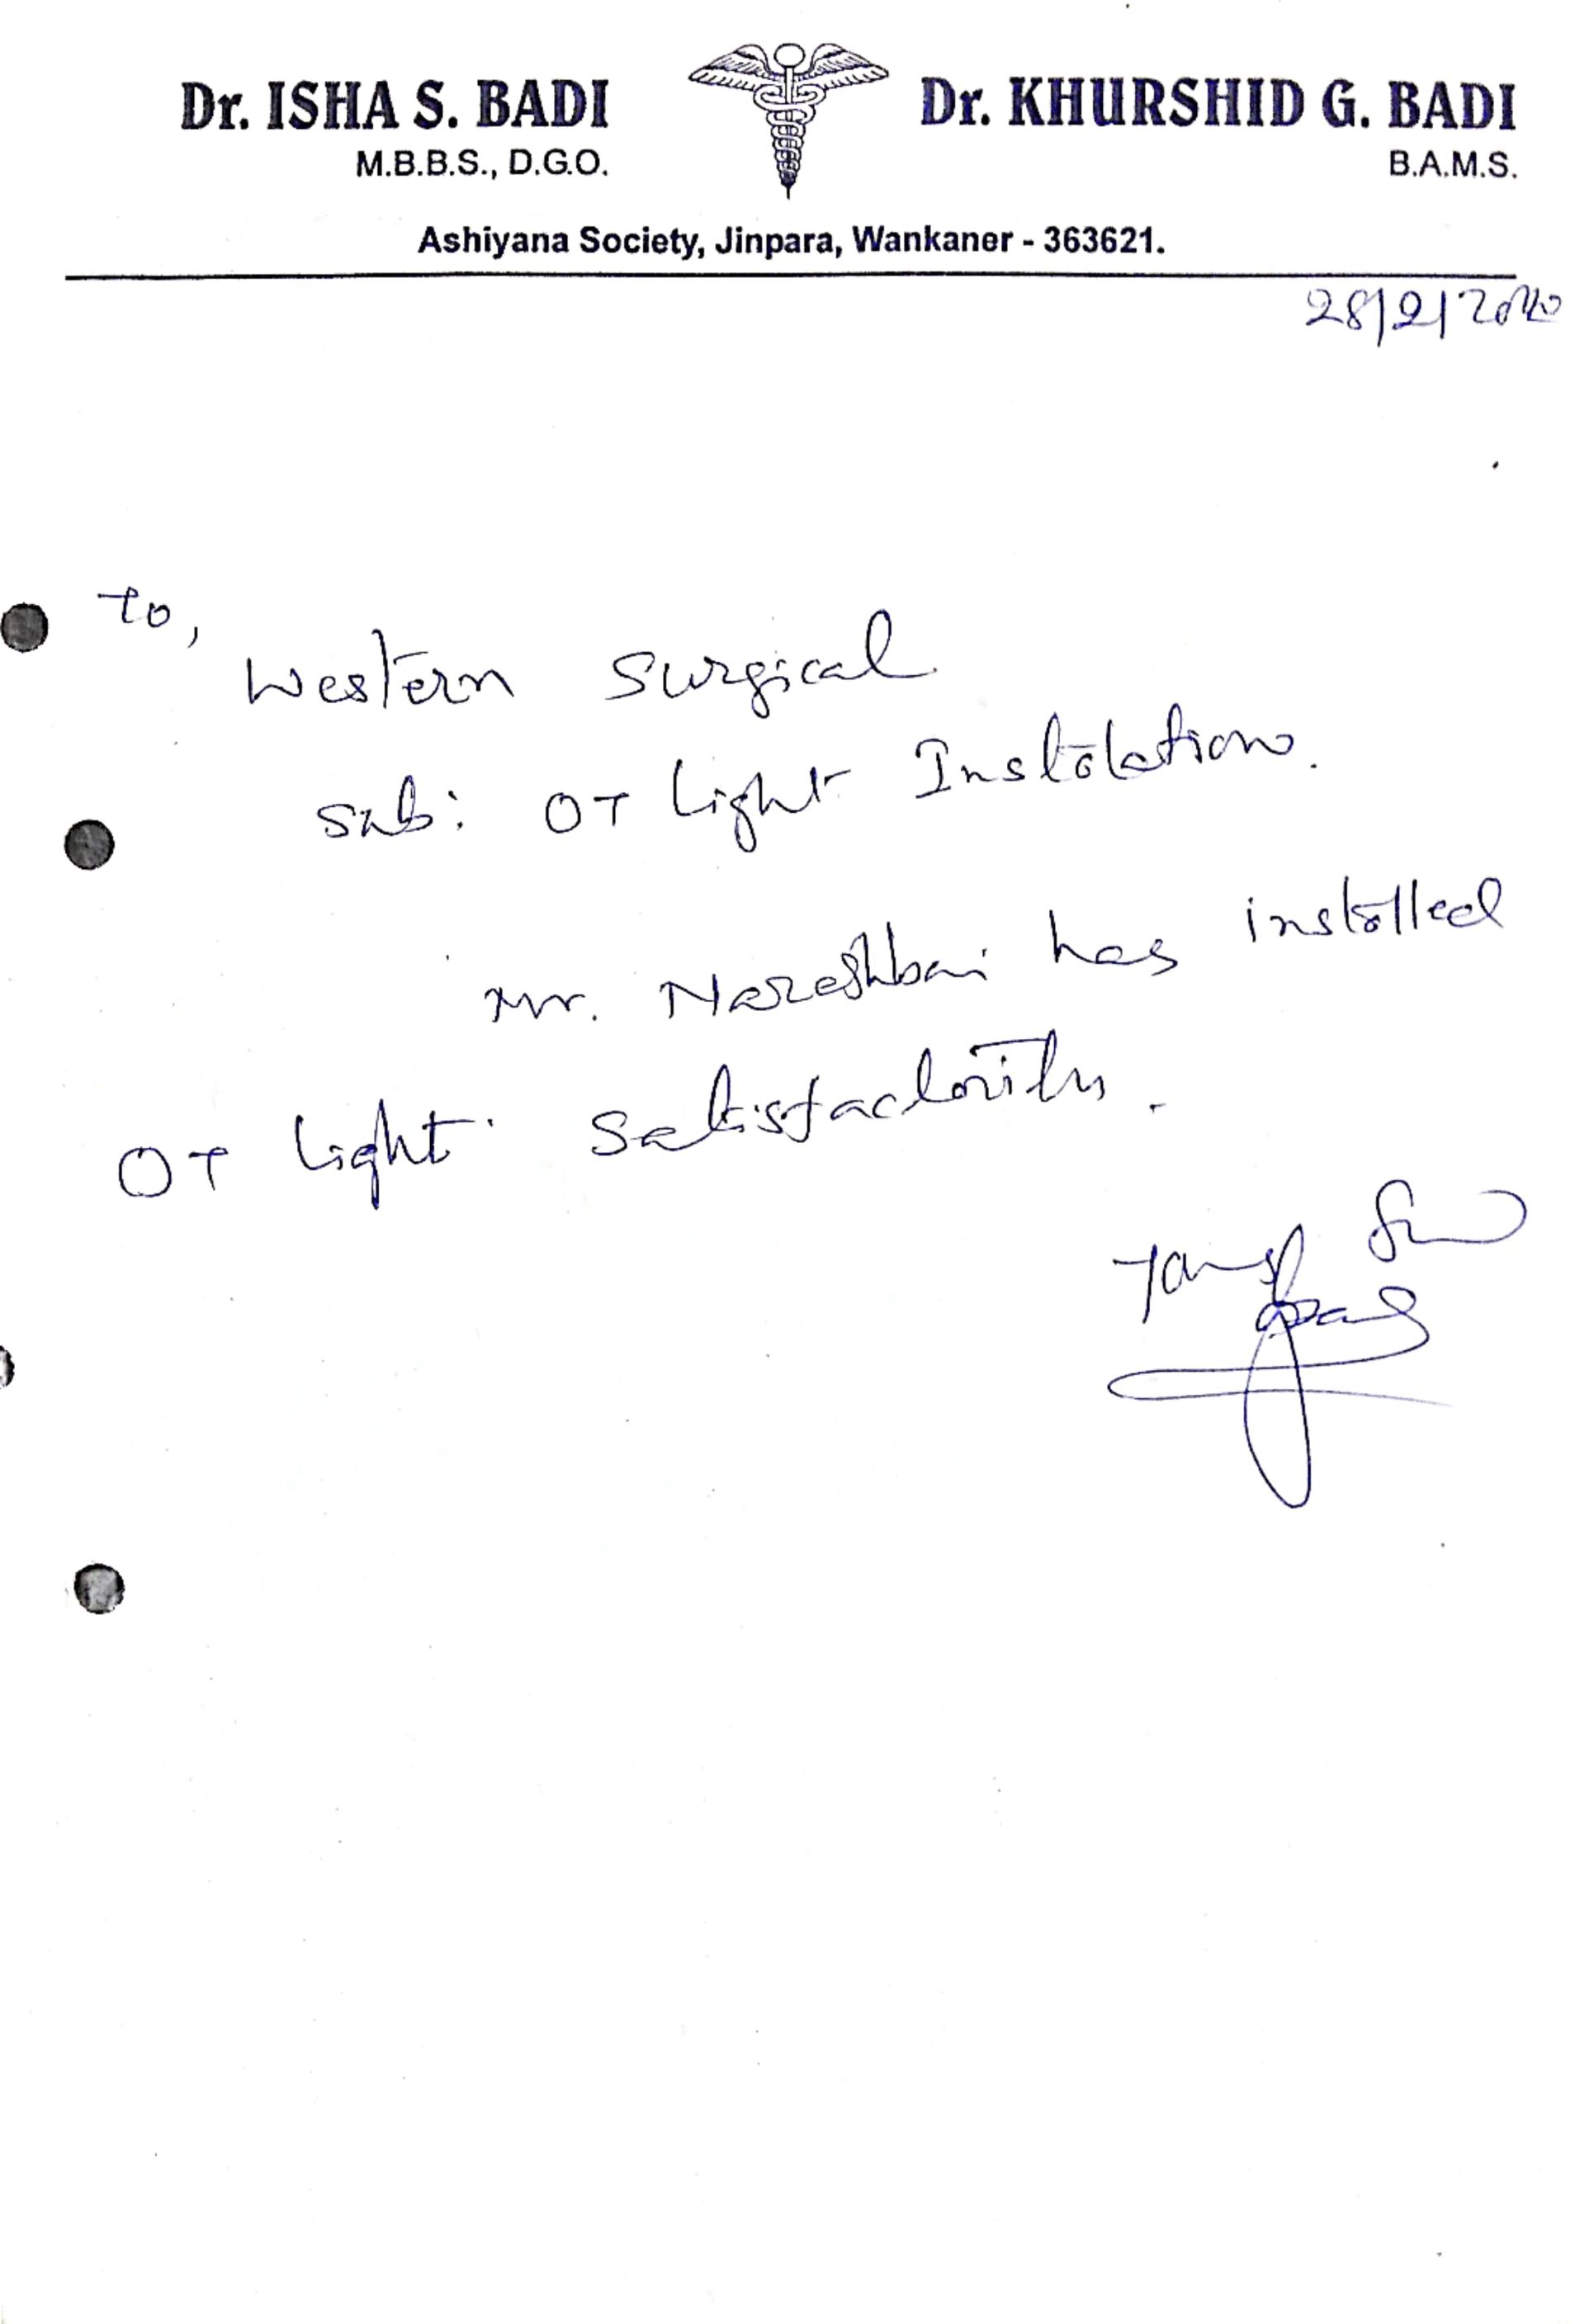 Dr. ISHA S. BADI
M.B.B.S., D.G.O.
Dr. KHURSHID G. BADI
B.A.M.S.
Ashiyana Society, Jinpara, Wankaner - 363621.
28/2/2020
To,
Western Surgical
Sub: OT Light Instolation.
Mr. Nareshbai has installed
OT Light satisfactorily.